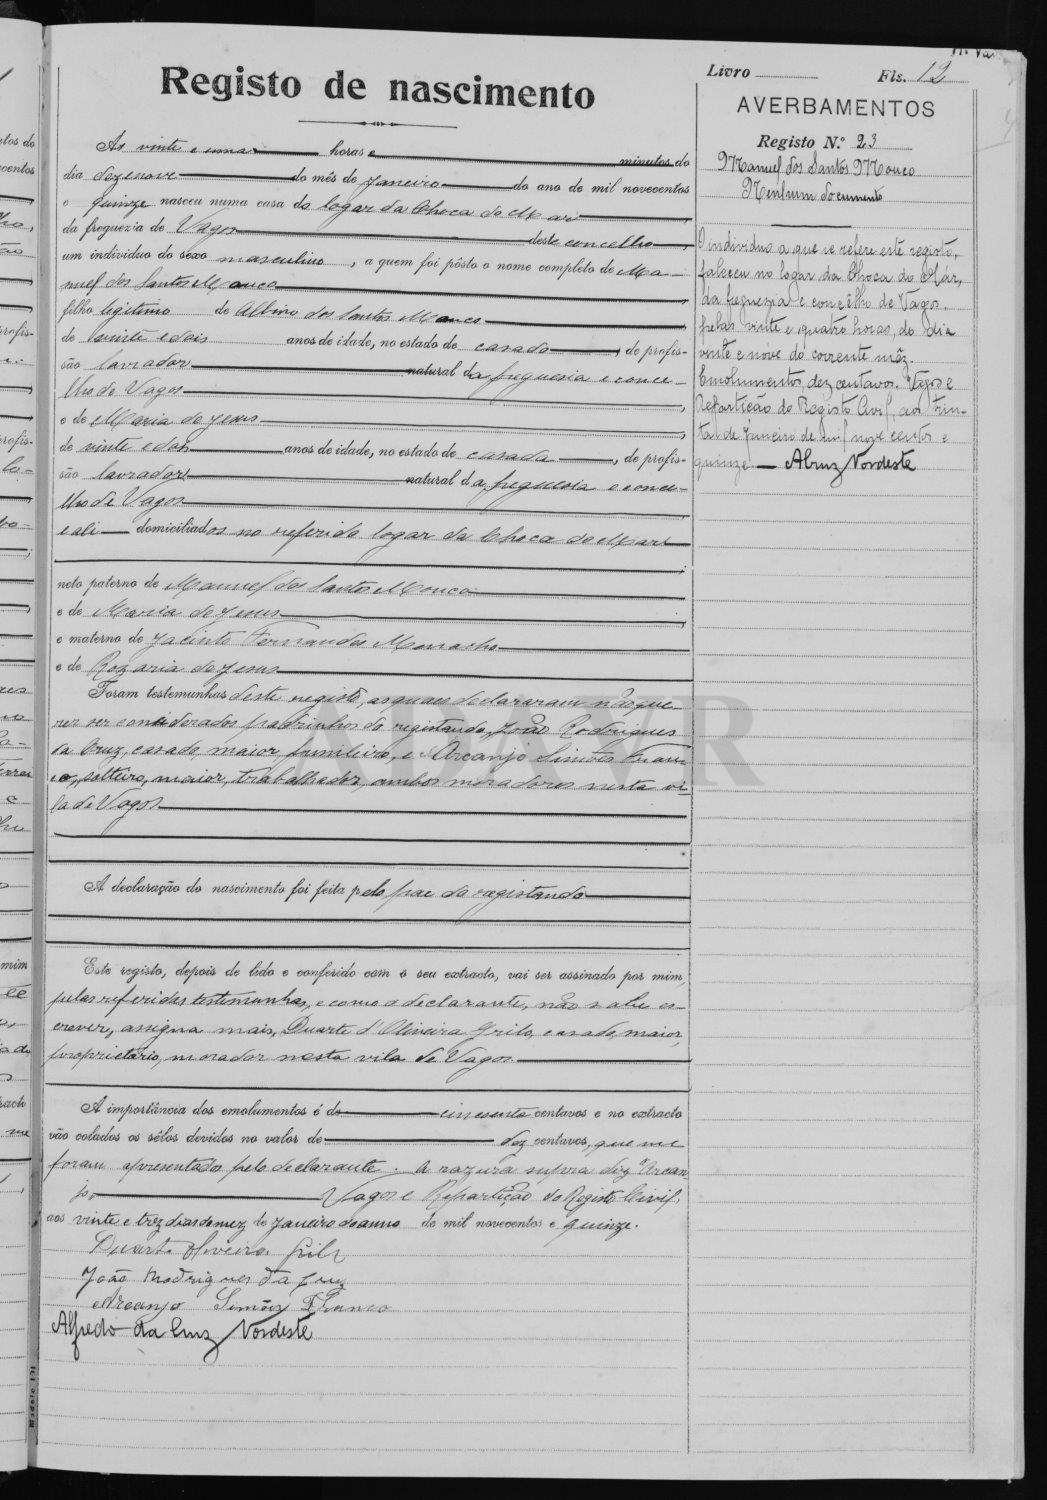 Livro Fls. 12
Registo de nascimento
AVERBAMENTOS
Registo N.º 23
Manuel dos Santos Mouco
Nenhum documento
O individuo a que se refere este registo,
faleceu no logar da Choca do Már,
da freguezia e concêlho de Vagos.
pelas vinte e quatro horas, do dia
vinte e nove do corrente mêz.
Emolumentos, dez centavos. Vagos e
Repartição do Registo Civil, aos trin-
ta de Janeiro de mil nove centos e
quinze. — ACruz Nordeste
Ás vinte e uma horas e minutos do
dia dezenove do mês de Janeiro do ano de mil novecentos
e quinze nasceu numa casa do logar da Choca do Mar
da freguezia de Vagos deste concelho,
um individuo do sexo masculino, a quem foi pôsto o nome completo de Ma-
nuel dos Santos Mouco
filho legitimo de Albino dos Santos Mouco
de vinte e dois anos de idade, no estado de casado, de profis-
são lavrador natural da freguesia e conce-
lho de Vagos,
e de Maria de Jesus,
de vinte e dois anos de idade, no estado de casada, de profis-
são lavradora natural da freguesia e conce-
lho de Vagos
e ali — domiciliados no referido logar da Choca do Mar
neto paterno de Manuel dos Santos Mouco
e de Maria de Jesus,
e materno de Jacinto Fernandes Monacho
e de Rozaria de Jesus
Foram testemunhas deste registo, as quaes declararam não que-
rer ser considerados padrinhos do registando, João Rodrigues
da Cruz, casado, maior, funileiro, e Arcanjo Simões Fran-
co, solteiro, maior, trabalhador, ambos moradores nesta vi-
la de Vagos
A declaração do nascimento foi feita pelo pae do registando
Este registo, depois de lido e conferido com o seu extracto, vai ser assinado por mim,
pelas referidas testemunhas, e como o declarante, não sabe es-
crever, assigna mais, Duarte d'Oliveira Grilo, casado, maior,
proprietário, morador nesta vila de Vagos
A importância dos emolumentos é de cincoenta centavos e no extracto
vão colados os sêlos devidos no valor de dez centavos, que me
foram apresentados pelo declarante. A razura supra diz "Arcan-
jo. Vagos e Repartição do Registo Civil,
aos vinte e trez dias do mez de Janeiro do anno de mil novecentos e quinze.
Duarte Oliveira Grilo
João Rodrigues da Cruz
Arcanjo Simões Franco
Alfredo da Cruz Nordeste
Modelo 171